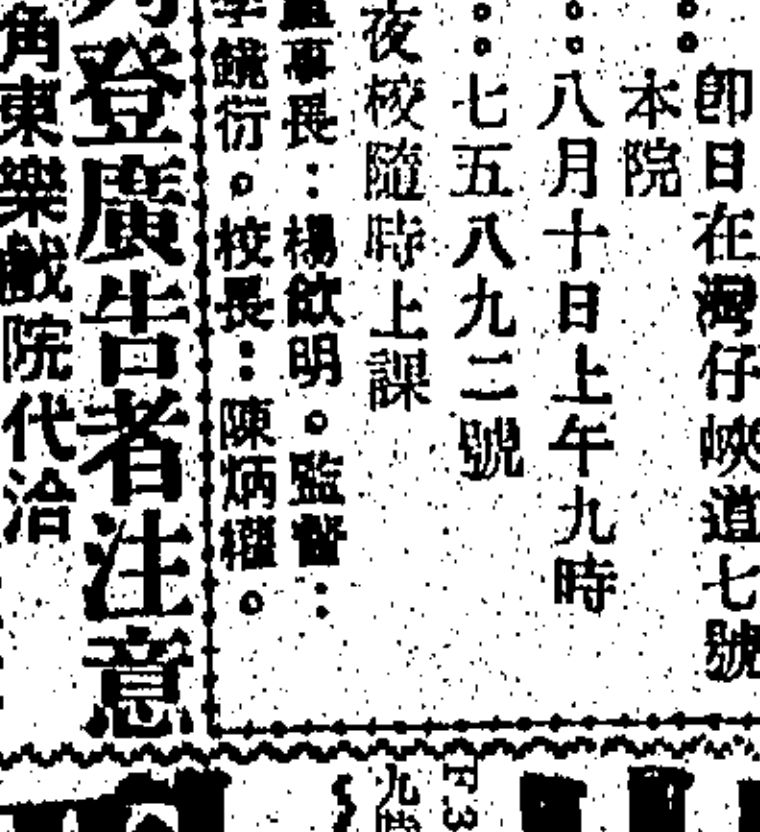 即日在灣仔峽道七號
本院
八月十日上午九時
七五八九二號
夜校隨時上課
董事長：楊歛明。監督：
李鐃衍。校長：陳炳權。
登廣告者注意
角東樂戲院代洽